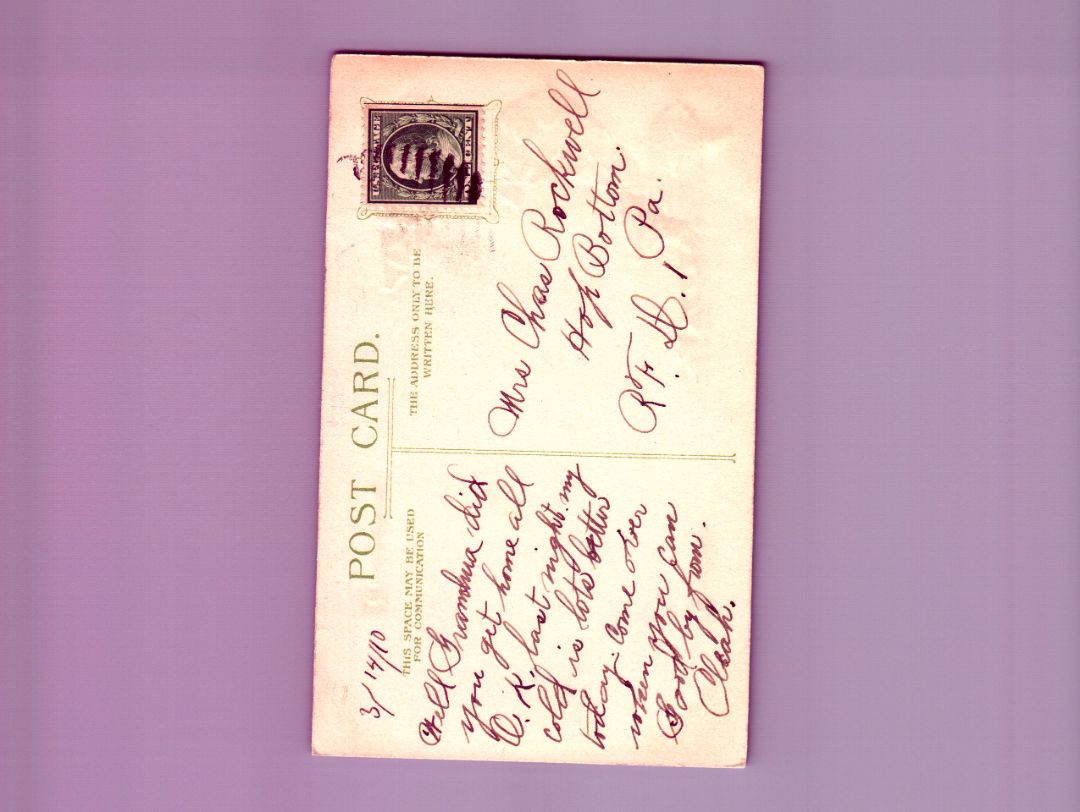 POST CARD.
3/14/10
THIS SPACE MAY BE USED
FOR COMMUNICATION
Well Grandma did
you get home all
O.K. last night. my
cold is lots better
today. Come over
when you can
Good by from
Cleah.
THE ADDRESS ONLY TO BE
WRITTEN HERE.
U.S. POSTAGE
ONE CENT
Mrs Chas Rockwell
Hop Bottom.
R.F.D. 1 Pa.